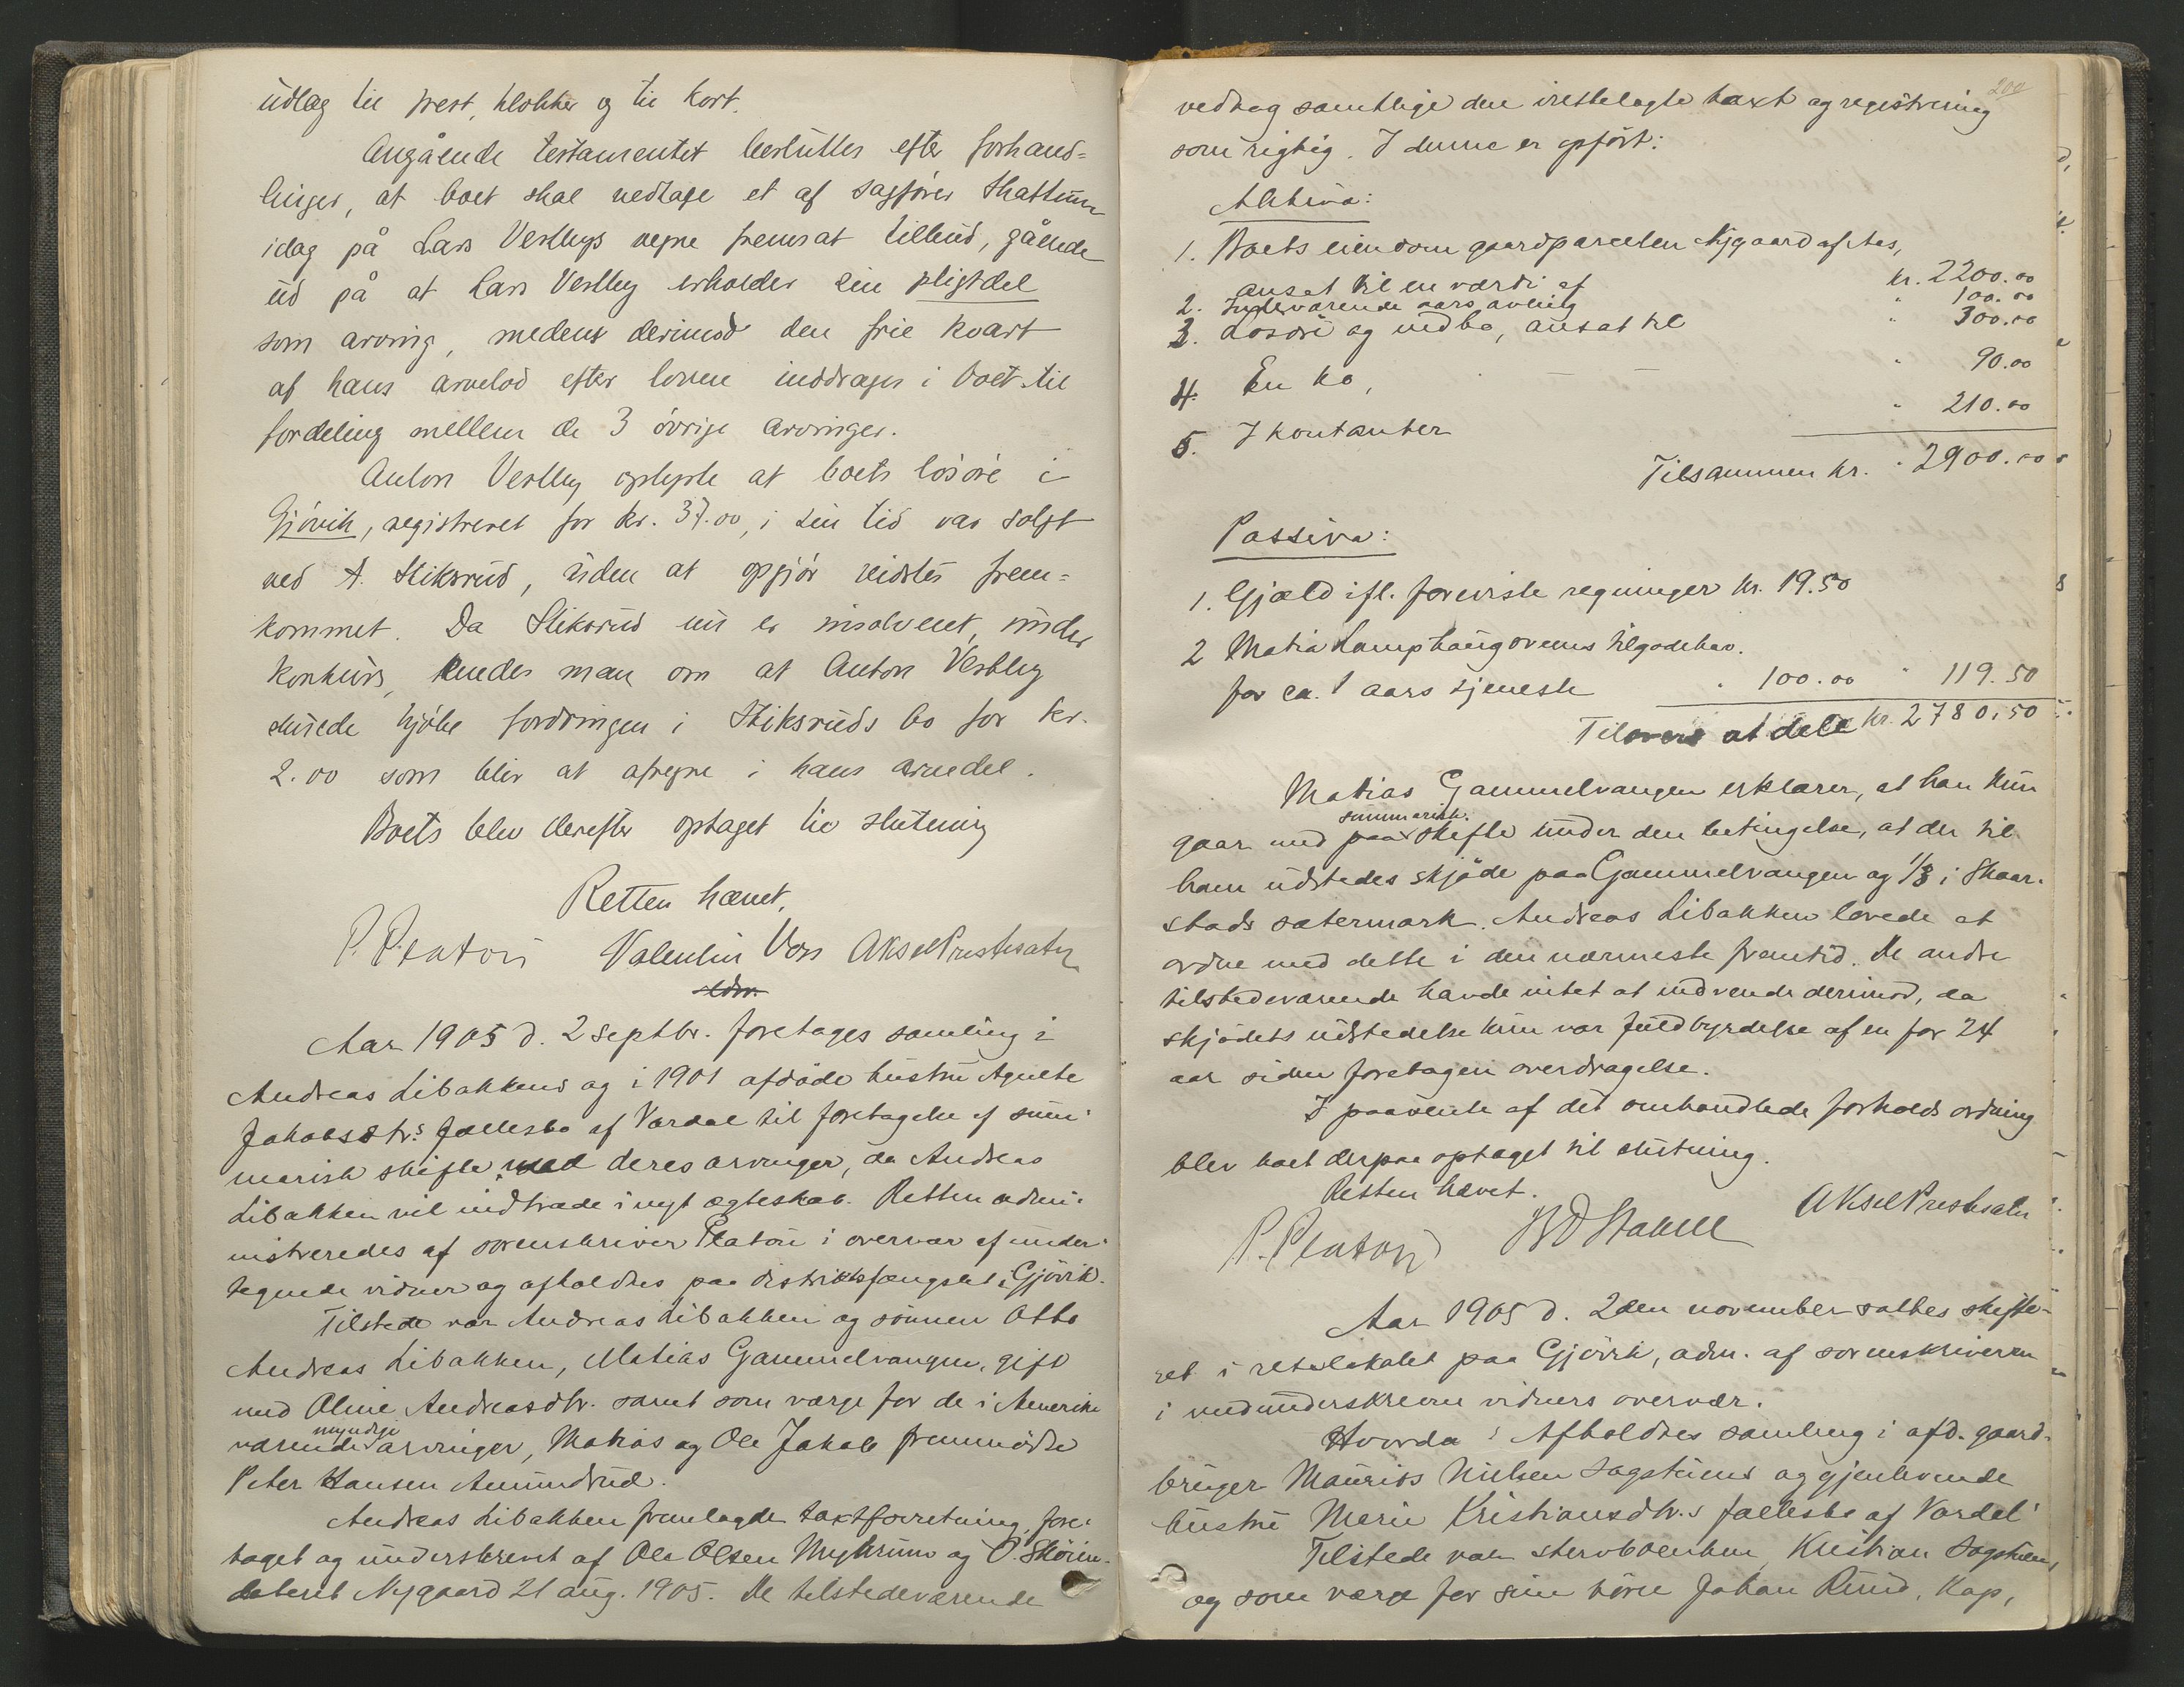 udlæg til prest, klokker og til kort.
Angående testamentet besluttes efter forhand-
linger, at boet skal vedtage et af sagfører Skattum
idag på Lars Vestbys vegne fremsat tilbud, gående
ud på at Lars Vestby erholder sin pligtdel
som arving, medens derimod den frie kvart
af hans arvelod efter loven inddrages i boet til
fordeling mellem de 3 øvrige arvinger.
Anton Vestby oplyste at boets løsøre i
Gjøvik, registreret for kr. 37.00, i sin tid var solgt
ved A. Stiksrud, uden at opgjør vidstes frem=
kommet. Da Stiksrud nu er insolvent, under
konkurs, enedes man om at Anton Vestby
skulde kjøbe fordringen i Stiksruds bo for kr.
2.00 som blir at afregne i hans arvedel.
Boets blev derefter optaget til slutning
Retten hævet,
P. Platou Valentin Voss Aksel Prestesæter
Aar 1905 d. 2 septbr. foretages samling i
Andreas Libakkens og i 1901 afdøde hustru Agnethe
Jakobsdtr.s fællesbo af Vardal til foretagelse af sum-
marisk skifte med deres arvinger, da Andreas
Libakken vil indtræde i nyt ægteskab. Retten admi-
nistreredes af sorenskriver Platou i overvær af under-
tegnede vidner og afholdtes paa distriktsfængslet i Gjøvik.
Tilstede var Andreas Libakken og sønnen Otto
Andreas Libakken, Matias Gammelvangen, gift
med Oline Andreasdtr. samt som værge for de i Amerika
værende myndige arvinger, Matias og Ole Jakob fremmødte
Peter Hansen Amundrud.
Andreas Libakken fremlagde taxtforretning, fore-
taget og underskrevet af Ole Olsen Myhrum og O. Skøien
dateret Nygaard 21 aug. 1905. De tilstedeværende
200
vedtog samtlige den irettelagte taxt og registrering
som rigtig. I denne er opført:
Aktiva:
1. Boets eiendom gaardparcelen Nygaard af Aas,
ansat til en værdi af kr. 2200.00
2. Indeværende aars avling " 100.00
3. Løsøre og indbo, ansat til " 300.00
4. En ko, — — " 90.00
5. I kontanter " 210.00
Tilsammen kr. " 2900.00
Passiva:
1. Gjæld ifl. foreviste regninger kr. 19.50
2 Matia Lamphaugovens tilgodehav.
for ca. 1 aars tjeneste " 100.00 " 119.50
Tilovers at dele kr. 2780.50
Matias Gammelvangen erklærer, at han kun
gaar med paa summarisk skifte under den betingelse, at der til
ham udstedes skjøde paa Gammelvangen og 1/3 i Skaar-
stads sætermark. Andreas Libakken lovede at
ordne med dette i den nærmeste fremtid. De andre
tilstedeværende havde intet at indvende derimod, da
skjødets udstedelse kun var fuldbyrdelse af en for 24
aar siden foretagen overdragelse.
I paavente af det omhandlede forholds ordning
blev boet derpaa optaget til slutning.
Retten hævet.
P. Platou Aksel Prestesæter
Aar 1905 d. 2den november sattes skifte-
ret i retslokalet paa Gjøvik, adm. af sorenskriveren
i medunderskrevne vidners overvær.
Hvorda: Afholdtes samling i afd. gaard-
bruger Maurits Nielsen Sagstuens og gjenlevende
hustru Marie Kristiansdtr.s fællesbo af Vardal
Tilstede var sterbboenken, Kristian Sagstuen,
og som værge for sine børn Johan Rund, Kap,